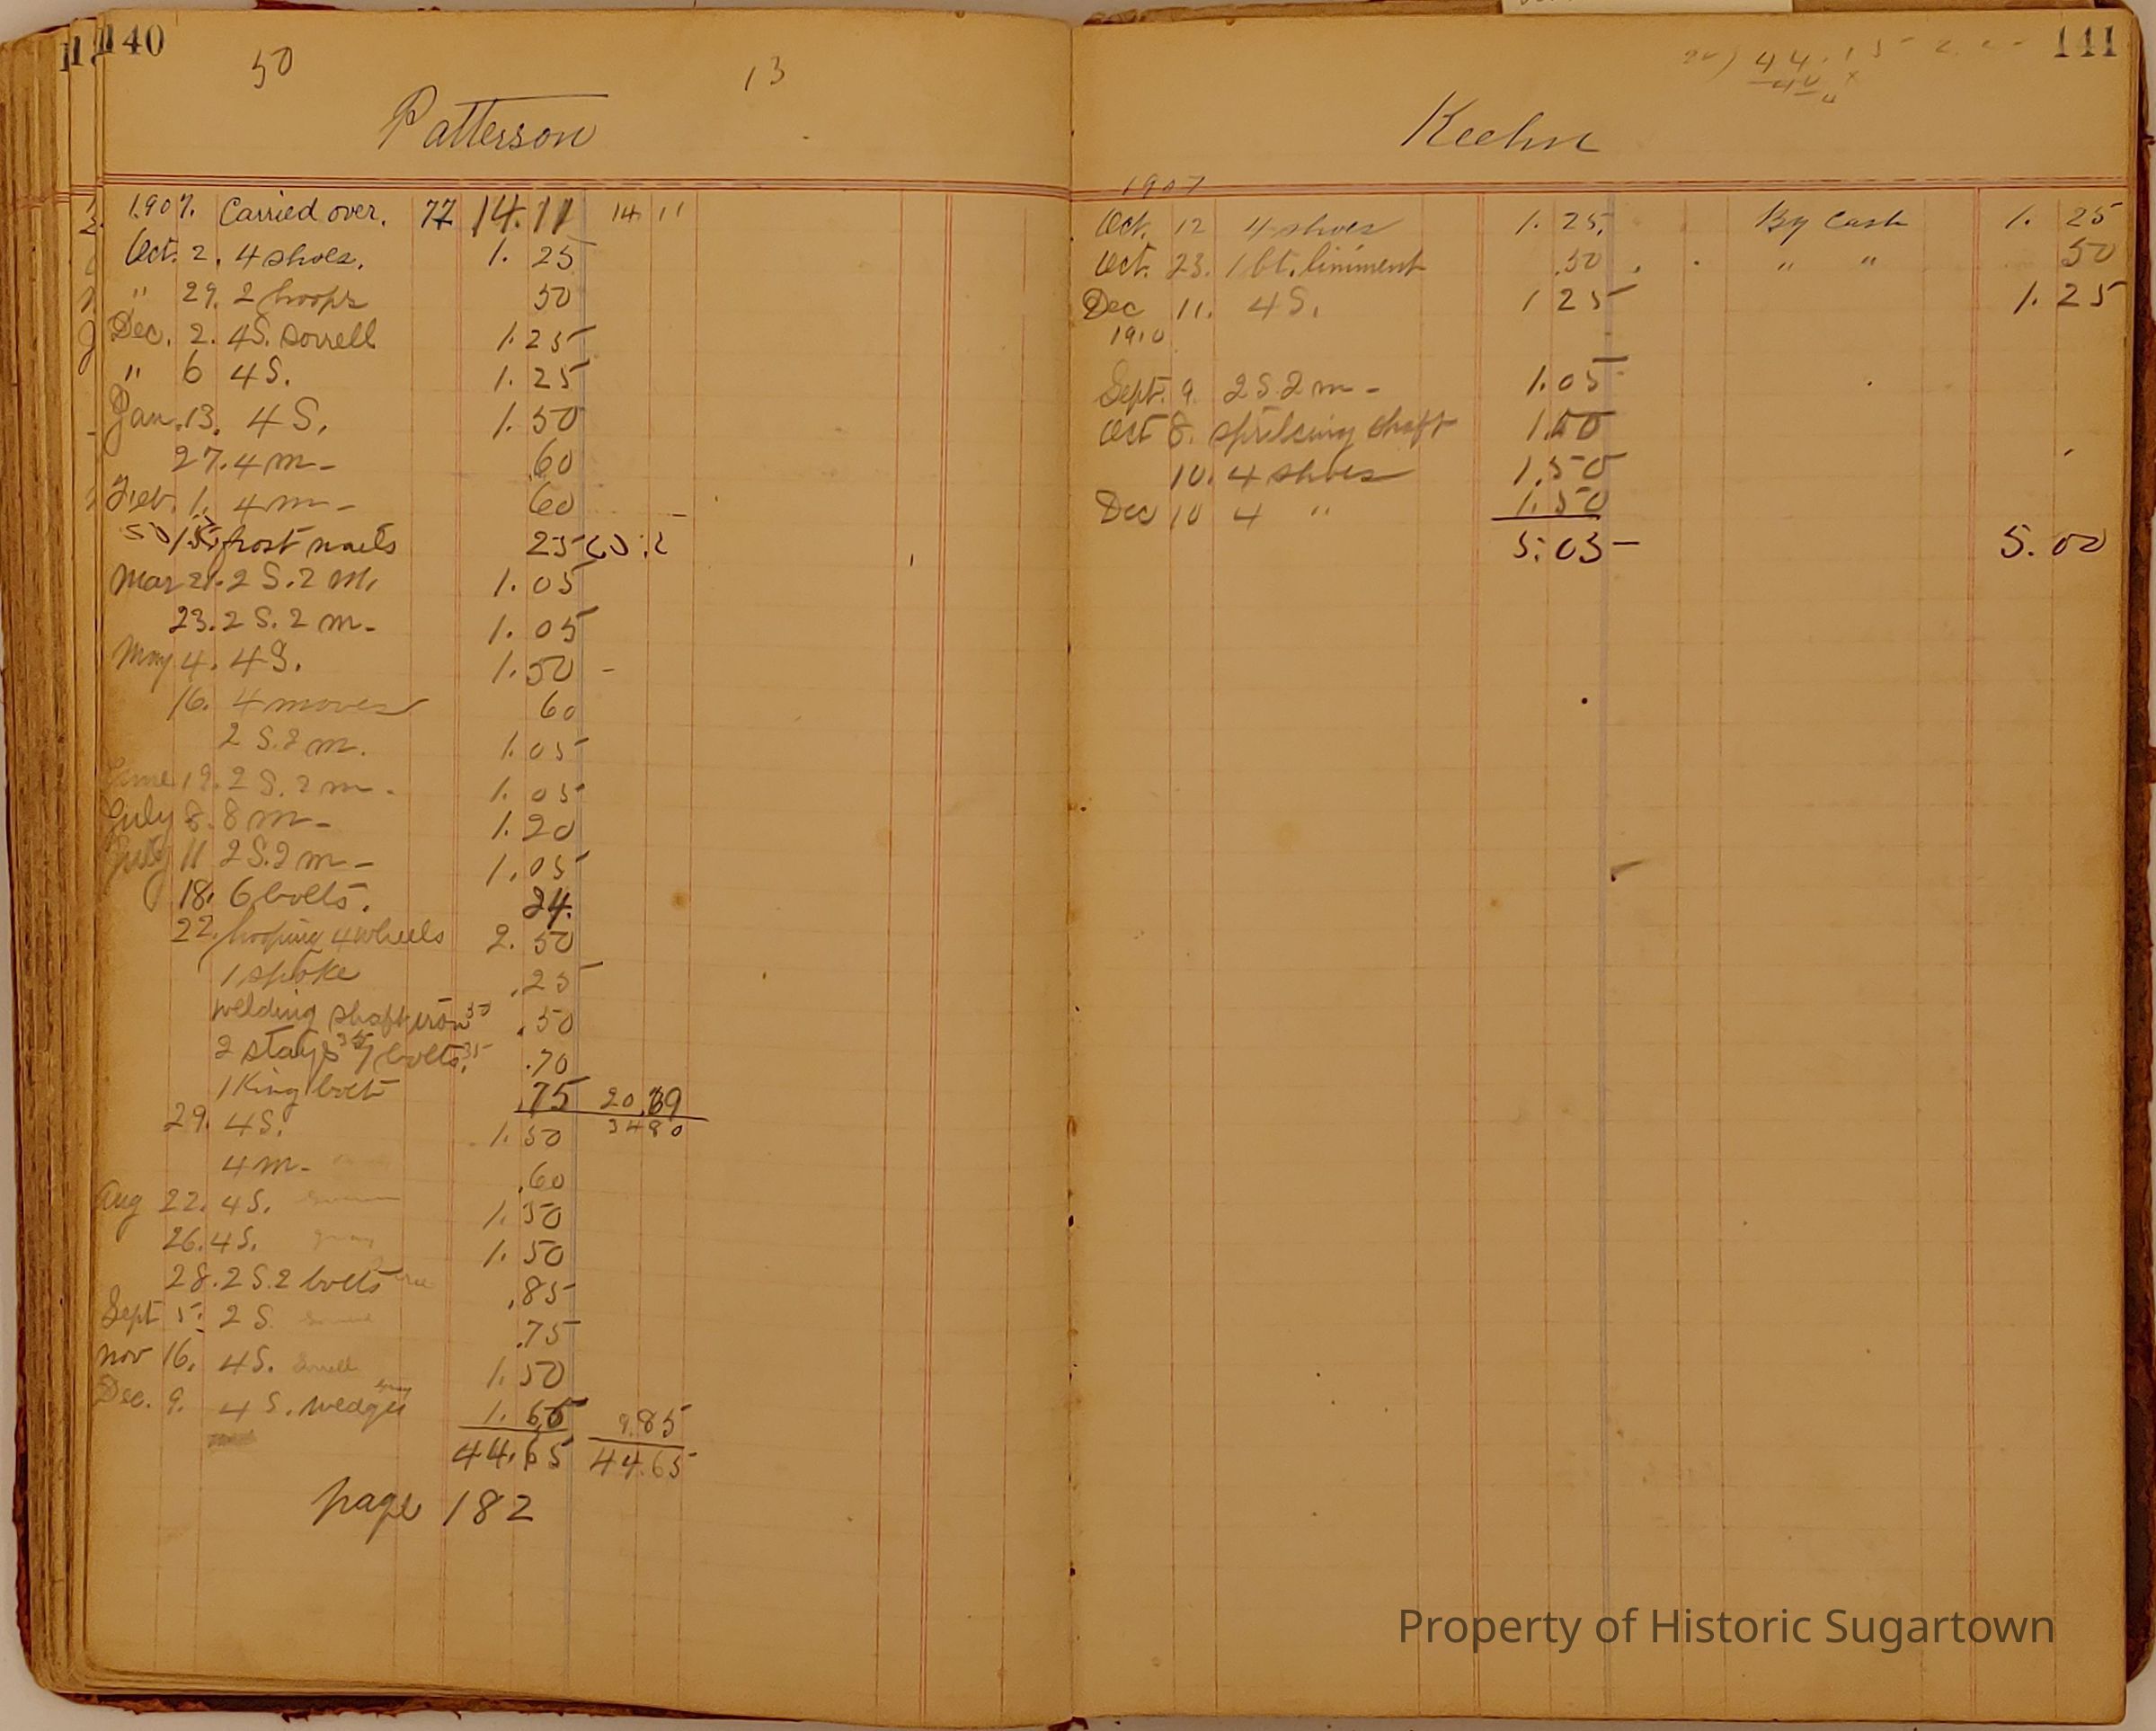 140
50
13
Patterson
1907. Carried over. 77 14.11 14 11
Oct. 2. 4 shoes. 1. 25
" 29. 2 hoops 50
Dec. 2. 4 S. Sorrell 1.25
" 6 4 S. 1. 25
Jan. 13. 4 S. 1. 50
27. 4 m- .60
Feb. 1. 4 m- 60
50 15 frost nails 25
Mar 21. 2 S. 2 M. 1. 05
23. 2 S. 2 m- 1. 05
May 4. 4 S. 1. 50 -
16. 4 moves 60
2 S. 2 m. 1. 05
June 19. 2 S. 2 m- 1. 05
July 8. 8 m- 1. 20
July 11 2 S. 2 m- 1. 05
18. 6 bolts. 24.
22. hooping 4 wheels 2. 50
1 spoke .25
welding shaft iron 50 .50
2 stays 35 7 bolts. 35 .70
1 King bolt .75 20.69
29. 4 S. 1. 50 34 80
4 m- .60
Aug 22. 4 S. 1. 50
26. 4 S. gray 1. 50
28. 2 S. 2 bolts .85
Sept 5. 2 S. .75
Nov 16. 4 S. Sorrell 1. 50
Dec. 9. 4 S. wedges 1. 65 9.85
44.65 44.65
page 182
141
Keehn
1907
Oct. 12 4 shoes 1. 25. By Cash 1. 25
Oct. 23. 1 bt. liniment .50 " " 50
Dec 11. 4 S. 1 25 1. 25
1910
Sept. 9. 2 S. 2 m- 1. 05
Oct 8. splicing shaft 1.00
10. 4 shoes 1.50
Dec 10 4 " 1.50
5. 05 5. 00
Property of Historic Sugartown